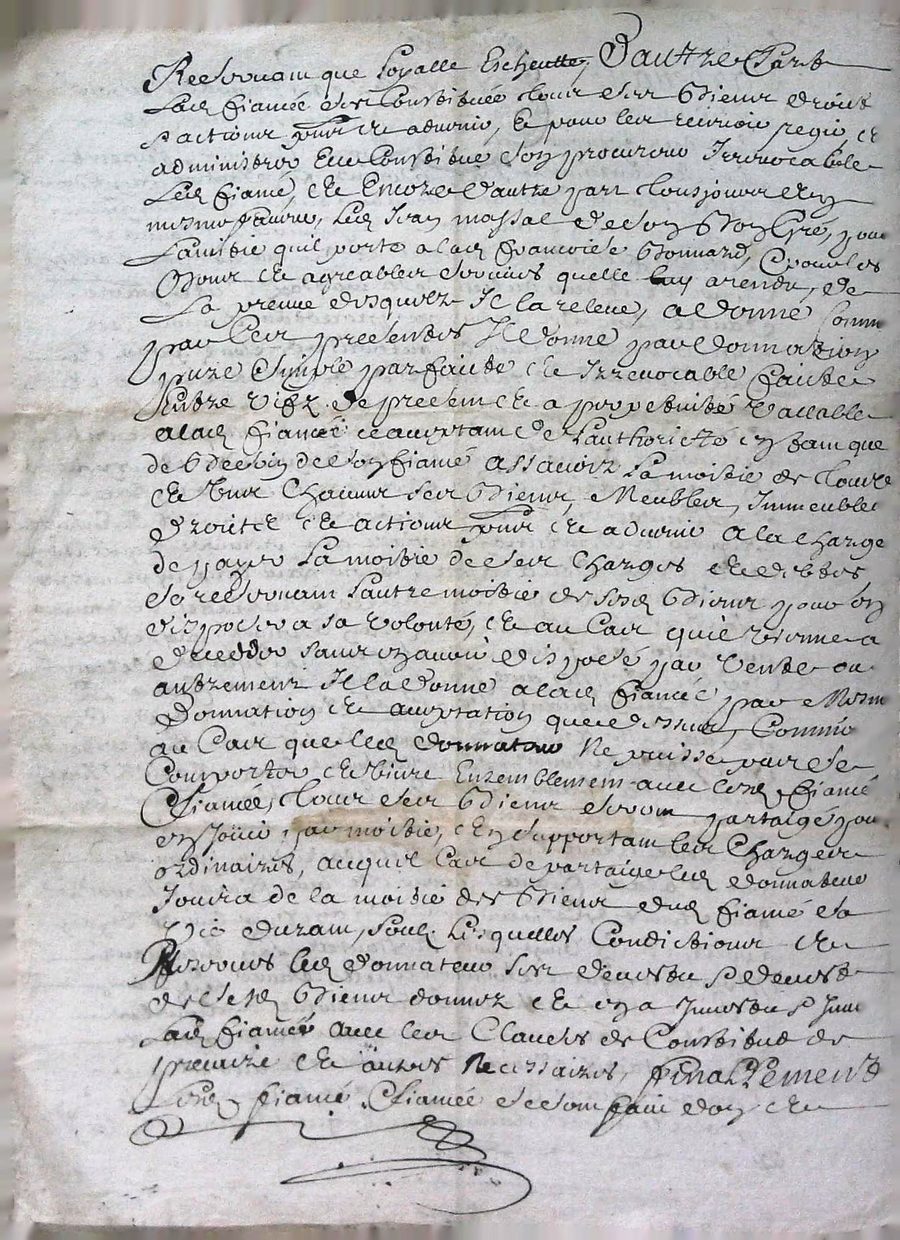 Reservant que loyalle Escheutte, D'autre Part
Lad fiancée s'est Constituée tous ses biens droits
& actions pour et advenir, et pour les recevoir regir et
administrer Elle Constitue son procureur Irrevocable
Led fiancé, et Encore d'autre part tousjours
mesme faveur, Led Jean massal de son bon Gré, pour
L'amitié quil porte a lad francoise bonnard, & pour les
bons et agreables services quelle luy a rendu, de
La preuve desquels Il la releve, a donné Comme
par Les presentes Il donne par donnation
pure simple parfaite et Irrevocable faite
Entre vifz de present et a perpetuité Vallable
a lad fiancée acceptant de l'authorité en tant que
de besoin de son fiancé assavoir La moitié de tous
et uns Chacuns ses biens, Meubles, Immeubles
droits et actions pour et advenir a la charge
de payer La moitié de ses charges et debtes
se reservant L'autre moitié de sesd biens pour en
disposer a sa volonté, et au Cas quil vienne a
deceder sans en avoir disposé par Vente ou
autrement Il la donne a lad fiancée par Mesme
donnation et acceptation que dessus, Comme
au Cas que led donnateur Ne puisse pas se
Comporter et vivre Ensemblement avec lesd fiancé
& fiancée, tous ses biens seront partagés pour
en Jouir par moitié, en supportant les Charges
ordinaires, auquel Cas de partaige led donnateur
Jouira de la moitié des biens dud fiancé sa
Vie durant, soubz Lesquelles Condictions et
Reserves led donnateur s'est devestu & devest
de sesd biens donnez et en a Investu & Invest
Lad fiancée avec les Clauses de Constitut de
precaire et autres Necessaires, finallement
Lesd fiancé & fiancée se sont fait don et